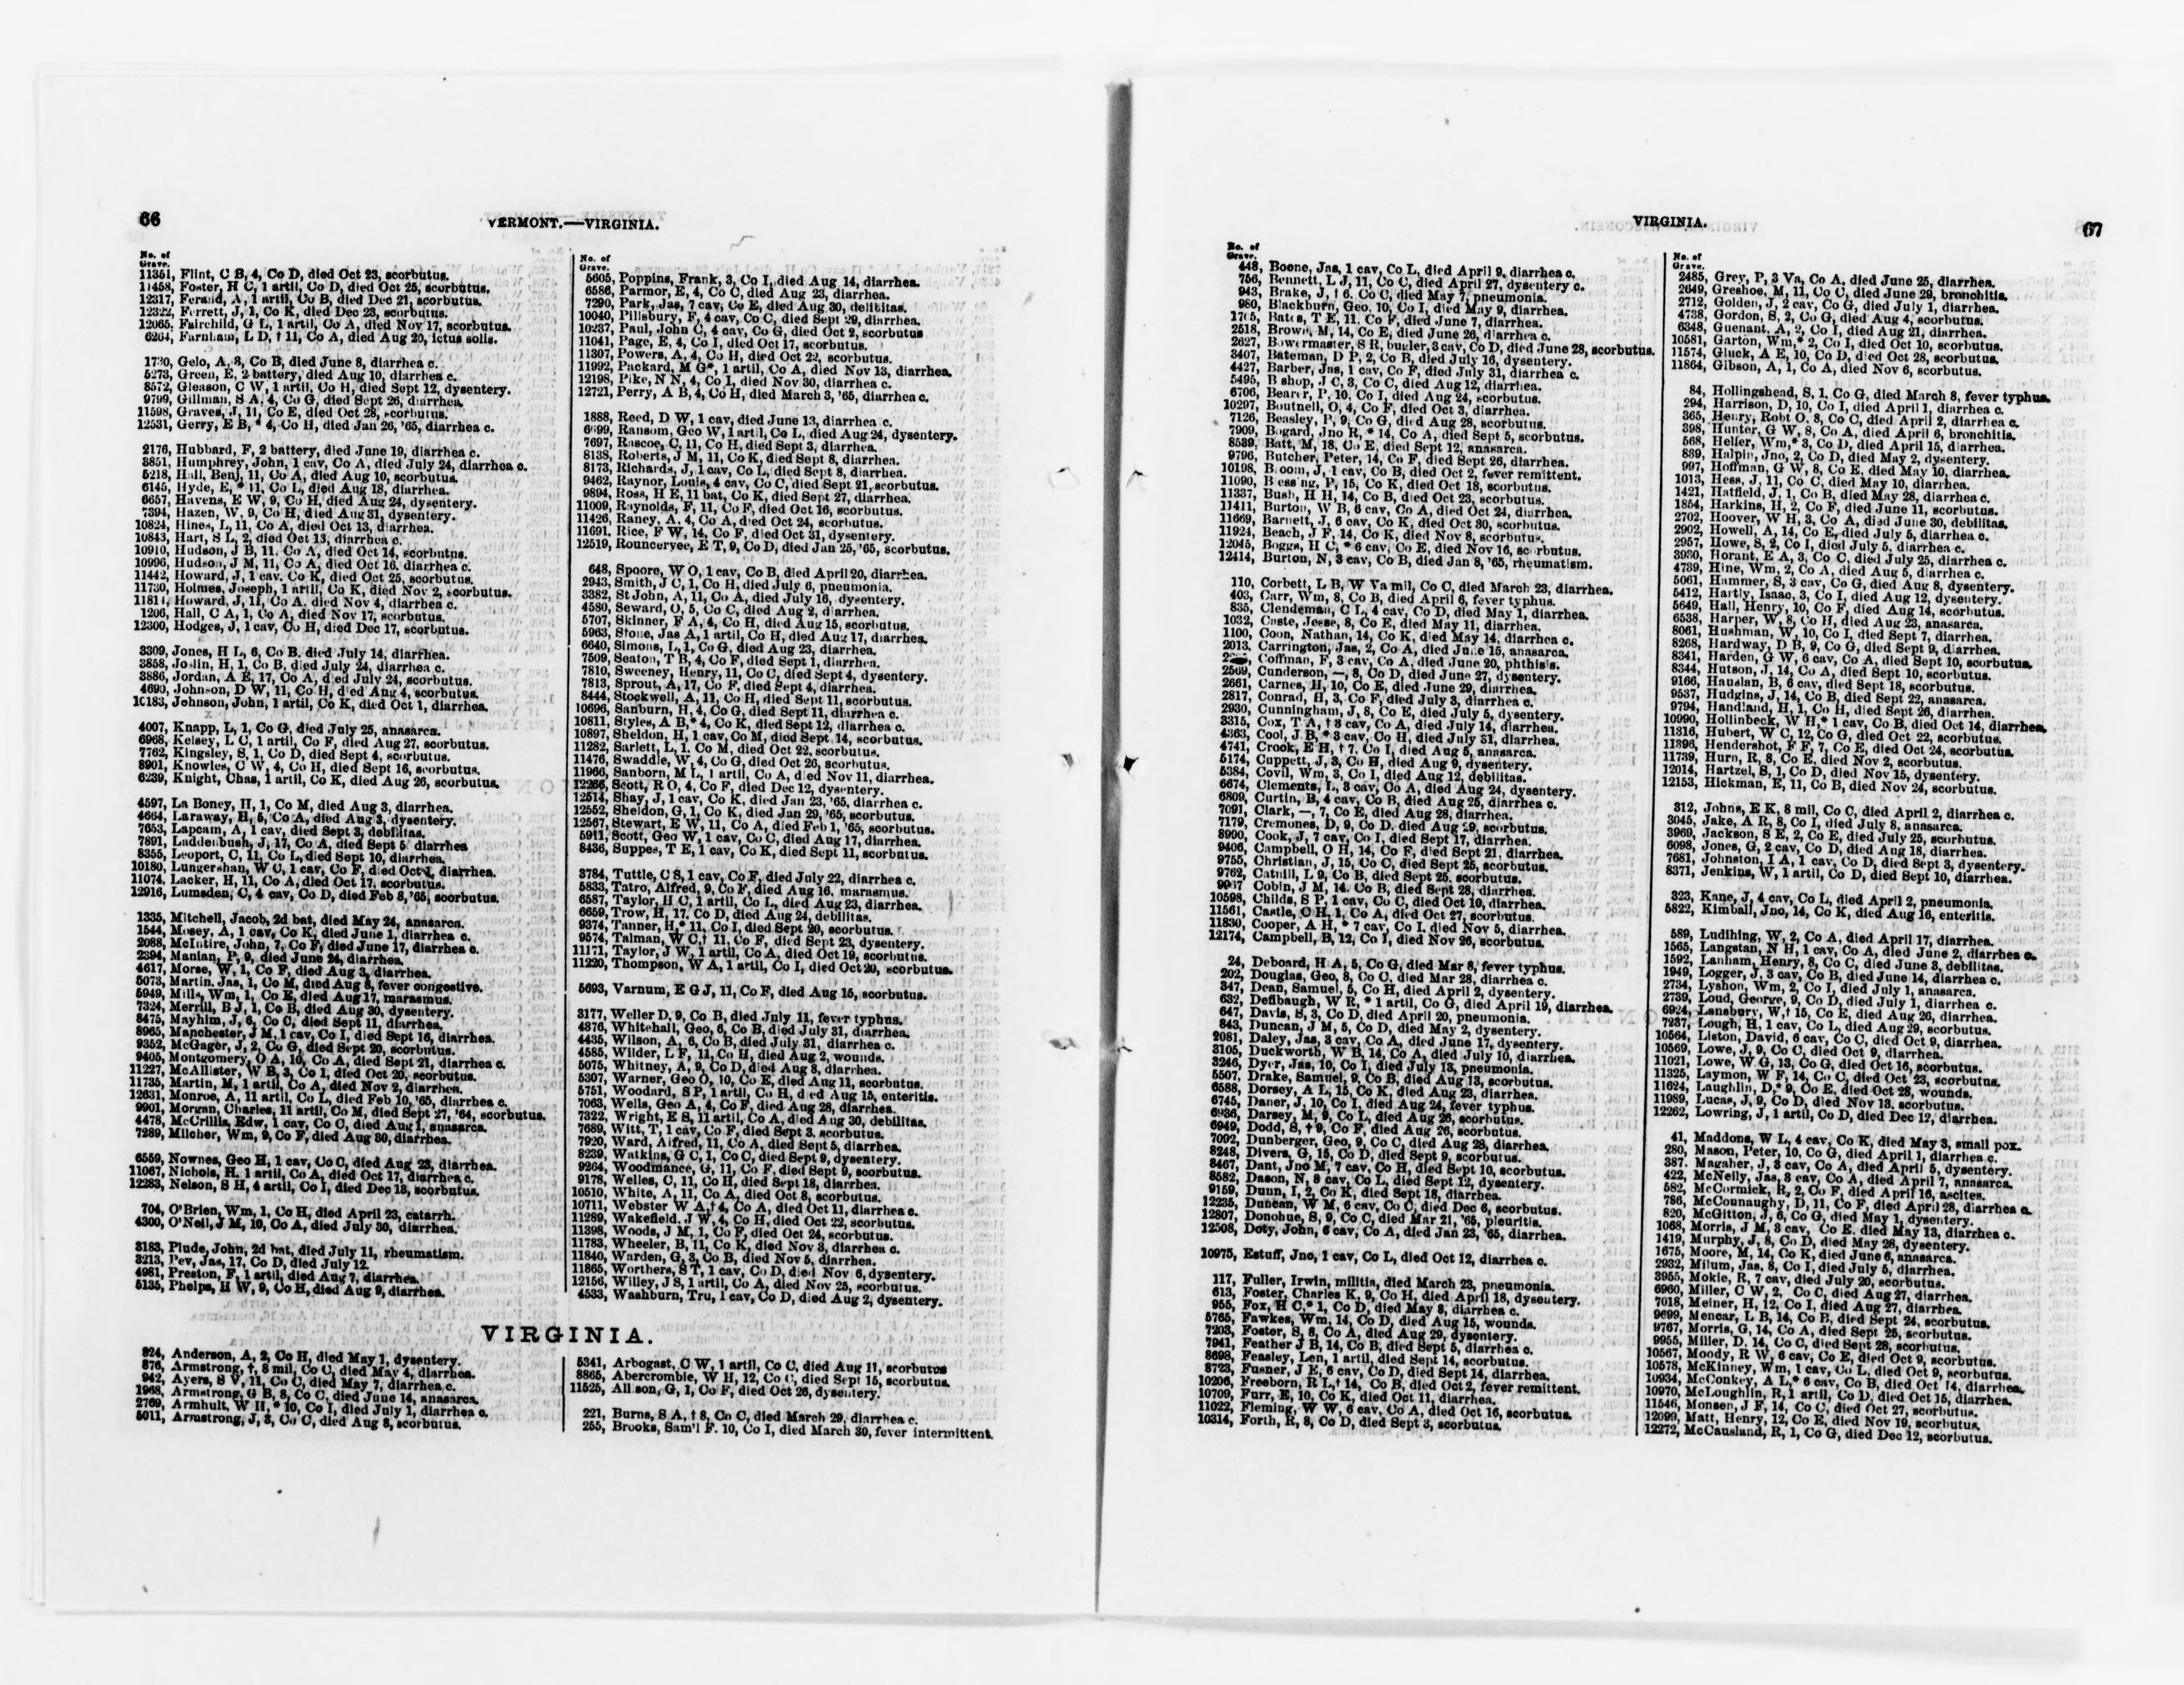 66
VERMONT.—VIRGINIA.
No. of
Grave.
11351, Flint, C B, 4, Co D, died Oct 23, scorbutus.
11458, Foster, H C, 1 artil, Co D, died Oct 25, scorbutus.
12317, Ferand, A, 1 artil, Co B, died Dec 21, scorbutus.
12322, Ferrett, J, 1, Co K, died Dec 23, scorbutus.
12065, Fairchild, G L, 1 artil, Co A, died Nov 17, scorbutus.
6264, Farnham, L D, † 11, Co A, died Aug 20, ictus solis.
1730, Gelo, A, 3, Co B, died June 8, diarrhea c.
5273, Green, E, 2 battery, died Aug 10, diarrhea c.
8572, Gleason, C W, 1 artil, Co H, died Sept 12, dysentery.
9799, Gillman, S A, 4, Co G, died Sept 26, diarrhea.
11598, Graves, J, 11, Co E, died Oct 28, scorbutus.
12531, Gerry, E B, * 4, Co H, died Jan 26, '65, diarrhea c.
2176, Hubbard, F, 2 battery, died June 19, diarrhea c.
3851, Humphrey, John, 1 cav, Co A, died July 24, diarrhoa c.
5218, Hall, Benj, 11, Co A, died Aug 10, scorbutus.
6145, Hyde, E, * 11, Co L, died Aug 18, diarrhea.
6657, Havens, E W, 9, Co H, died Aug 24, dysentery.
7394, Hazen, W, 9, Co H, died Aug 31, dysentery.
10824, Hines, L, 11, Co A, died Oct 13, diarrhea.
10843, Hart, S L, 2, died Oct 13, diarrhea c.
10910, Hudson, J B, 11, Co A, died Oct 14, scorbutus.
10996, Hudson, J M, 11, Co A, died Oct 16, diarrhea c.
11442, Howard, J, 1 cav, Co K, died Oct 25, scorbutus.
11730, Holmes, Joseph, 1 artil, Co K, died Nov 2, scorbutus.
Howard, J, 11, Co A, died Nov 4, diarrhea c.
1206, Hall, C A, 1, Co A, died Nov 17, scorbutus.
12300, Hodges, J, 1 cav, Co H, died Dec 17, scorbutus.
3309, Jones, H L, 6, Co B, died July 14, diarrhea.
3858, Joslin, H, 1, Co B, died July 24, diarrhea c.
3886, Jordan, A E, 17, Co A, died July 24, scorbutus.
4690, Johnson, D W, 11, Co H, died Aug 4, scorbutus.
10183, Johnson, John, 1 artil, Co K, died Oct 1, diarrhea.
4007, Knapp, L, 1, Co G, died July 25, anasarca.
6968, Kelsey, L C, 1 artil, Co F, died Aug 27, scorbutus.
7762, Kingsley, S, 1, Co D, died Sept 4, scorbutus.
8901, Knowles, C W, 4, Co H, died Sept 16, scorbutus.
6239, Knight, Chas, 1 artil, Co K, died Aug 26, scorbutus.
4597, La Boney, H, 1, Co M, died Aug 3, diarrhea.
4664, Laraway, H, 5, Co A, died Aug 3, dysentery.
7653, Lapcam, A, 1 cav, died Sept 3, debilitas.
7891, Laddenbush, J, 17, Co A, died Sept 5 diarrhea
8355, Leoport, C, 11, Co L, died Sept 10, diarrhea.
10180, Lungershan, W C, 1 cav, Co F, died Oct 1, diarrhea.
11074, Lacker, H, 11, Co A, died Oct 17, scorbutus.
12916, Lumsden, C, 4 cav, Co D, died Feb 8, '65, scorbutus.
1335, Mitchell, Jacob, 2d bat, died May 24, anasarca.
1544, Mosey, A, 1 cav, Co K, died June 1, diarrhea c.
2088, McIntire, John, 7, Co F, died June 17, diarrhea c.
2394, Manian, P, 9, died June 24, diarrhea.
4617, Morse, W, 1, Co F, died Aug 3, diarrhea.
5073, Martin, Jas, 1, Co M, died Aug 8, fever congestive.
5949, Mills, Wm, 1, Co E, died Aug 17, marasmus.
7324, Merrill, B J, 1, Co B, died Aug 30, dysentery.
8475, Mayhim, J, 6, Co C, died Sept 11, diarrhea.
8965, Manchester, J M, 1 cav, Co I, died Sept 16, diarrhea.
9352, McGager, J, 2, Co G, died Sept 20, scorbutus.
9405, Montgomery, O A, 10, Co A, died Sept 21, diarrhea c.
11227, McAllister, W B, 3, Co I, died Oct 20, scorbutus.
11735, Martin, M, 1 artil, Co A, died Nov 2, diarrhea.
12631, Monroe, A, 11 artil, Co L, died Feb 10, '65, diarrhea c.
9901, Morgan, Charles, 11 artil, Co M, died Sept 27, '64, scorbutus.
4478, McCrillis, Edw, 1 cav, Co C, died Aug 1, anasarca.
7289, Milcher, Wm, 9, Co F, died Aug 30, diarrhea.
6559, Nownes, Geo H, 1 cav, Co C, died Aug 23, diarrhea.
11067, Nichols, H, 1 artil, Co A, died Oct 17, diarrhea c.
12283, Nelson, S H, 4 artil, Co I, died Dec 13, scorbutus.
704, O'Brien, Wm, 1, Co H, died April 23, catarrh.
4300, O'Neil, J M, 10, Co A, died July 30, diarrhea.
3183, Plude, John, 2d bat, died July 11, rheumatism.
3213, Pev, Jas, 17, Co D, died July 12.
4981, Preston, F, 1 artil, died Aug 7, diarrhea.
5135, Phelps, H W, 9, Co H, died Aug 9, diarrhea.
No. of
Grave.
5605, Poppins, Frank, 3, Co I, died Aug 14, diarrhea.
6586, Parmor, E, 4, Co C, died Aug 23, diarrhea.
7290, Park, Jas, 7 cav, Co E, died Aug 30, delitilas.
10040, Pillsbury, F, 4 cav, Co C, died Sept 29, diarrhea.
10237, Paul, John C, 4 cav, Co G, died Oct 2, scorbutus
11041, Page, E, 4, Co I, died Oct 17, scorbutus.
11307, Powers, A, 4, Co H, died Oct 22, scorbutus.
11992, Packard, M G*, 1 artil, Co A, died Nov 13, diarrhea.
12198, Pike, N N, 4, Co I, died Nov 30, diarrhea c.
12721, Perry, A B, 4, Co H, died March 3, '65, diarrhea c.
1888, Reed, D W, 1 cav, died June 13, diarrhea c.
Ransom, Geo W, 1 artil, Co L, died Aug 24, dysentery.
7697, Roscoe, C, 11, Co H, died Sept 3, diarrhea.
8138, Roberts, J M, 11, Co K, died Sept 8, diarrhea.
8173, Richards, J, 1 cav, Co L, died Sept 8, diarrhea.
9462, Raynor, Louis, 4 cav, Co C, died Sept 21, scorbutus.
9894, Ross, H E, 11 bat, Co K, died Sept 27, diarrhea.
11009, Reynolds, F, 11, Co F, died Oct 16, scorbutus.
11426, Raney, A, 4, Co A, died Oct 24, scorbutus.
11691, Rice, F W, 14, Co F, died Oct 31, dysentery.
12519, Rounceryee, E T, 9, Co D, died Jan 25, '65, scorbutus.
648, Spoore, W O, 1 cav, Co B, died April 20, diarrhea.
2943, Smith, J C, 1, Co H, died July 6, pneumonia.
3382, St John, A, 11, Co A, died July 16, dysentery.
4580, Seward, O, 5, Co C, died Aug 2, diarrhea.
5707, Skinner, F A, 4, Co H, died Aug 15, scorbutus.
5963, Stone, Jas A, 1 artil, Co H, died Aug 17, diarrhea.
6640, Simons, L, 1, Co G, died Aug 23, diarrhea.
7509, Seaton, T B, 4, Co F, died Sept 1, diarrhea.
7810, Sweeney, Henry, 11, Co C, died Sept 4, dysentery.
7813, Sprout, A, 17, Co F, died Sept 4, diarrhea.
8444, Stockwell, A, 11, Co H, died Sept 11, scorbutus.
10696, Sanburn, H, 4, Co G, died Sept 11, diarrhea c.
10811, Styles, A B,* 4, Co K, died Sept 12, diarrhea c.
10897, Sheldon, H, 1 cav, Co M, died Sept 14, scorbutus.
11282, Sarlett, L, 1, Co M, died Oct 22, scorbutus.
11476, Swaddle, W, 4, Co G, died Oct 26, scorbutus.
11966, Sanborn, M L, 1 artil, Co A, died Nov 11, diarrhea.
12266, Scott, R O, 4, Co F, died Dec 12, dysentery.
12514, Shay, J, 1 cav, Co K, died Jan 23, '65, diarrhea c.
12552, Sheldon, G, 1, Co K, died Jan 29, '65, scorbutus.
12567, Stewart, E W, 11, Co A, died Feb 1, '65, scorbutus.
5911, Scott, Geo W, 1 cav, Co C, died Aug 17, diarrhea.
8436, Suppes, T E, 1 cav, Co K, died Sept 11, scorbutus.
3784, Tuttle, C S, 1 cav, Co F, died July 22, diarrhea c.
5833, Tatro, Alfred, 9, Co F, died Aug 16, marasmus.
6587, Taylor, H C, 1 artil, Co L, died Aug 23, diarrhea.
6659, Trow, H, 17, Co D, died Aug 24, debilitas.
9374, Tanner, H,* 11, Co I, died Sept 20, scorbutus.
9574, Talman, W C,† 11, Co F, died Sept 23, dysentery.
11171, Taylor, J W, 1 artil, Co A, died Oct 19, scorbutus.
11220, Thompson, W A, 1 artil, Co I, died Oct 20, scorbutus.
5693, Varnum, E G J, 11, Co F, died Aug 15, scorbutus.
3177, Weller D, 9, Co B, died July 11, fever typhus.
4376, Whitehall, Geo, 6, Co B, died July 31, diarrhea.
4435, Wilson, A, 6, Co B, died July 31, diarrhea c.
4585, Wilder, L F, 11, Co H, died Aug 2, wounds.
5075, Whitney, A, 9, Co D, died Aug 8, diarrhea.
5307, Warner, Geo O, 10, Co E, died Aug 11, scorbutus.
5751, Woodard, S P, 1 artil, Co H, died Aug 15, enteritis.
7063, Wells, Geo A, 4, Co F, died Aug 28, diarrhea.
7322, Wright, E S, 11 artil, Co A, died Aug 30, debilitas.
7689, Witt, T, 1 cav, Co F, died Sept 3, scorbutus.
7920, Ward, Alfred, 11, Co A, died Sept 5, diarrhea.
8239, Watkins, G C, 1, Co C, died Sept 9, dysentery.
9264, Woodmance, G, 11, Co F, died Sept 9, scorbutus.
9178, Welles, C, 11, Co H, died Sept 18, diarrhea.
10510, White, A, 11, Co A, died Oct 8, scorbutus.
10711, Webster W A,† 4, Co A, died Oct 11, diarrhea c.
11289, Wakefield, J W, 4, Co H, died Oct 22, scorbutus.
11398, Woods, J M, 1, Co F, died Oct 24, scorbutus.
11783, Wheeler, B, 11, Co K, died Nov 3, diarrhea c.
11840, Warden, G, 3, Co B, died Nov 5, diarrhea.
11865, Worthers, S T, 1 cav, Co D, died Nov 6, dysentery.
12156, Willey, J S, 1 artil, Co A, died Nov 25, scorbutus.
4533, Washburn, Tru, 1 cav, Co D, died Aug 2, dysentery.
VIRGINIA.
824, Anderson, A, 2, Co H, died May 1, dysentery.
876, Armstrong, †, 8 mil, Co C, died May 4, diarrhea.
942, Ayers, S V, 11, Co C, died May 7, diarrhea c.
1968, Armstrong, G B, 8, Co C, died June 14, anasarca.
2769, Armhult, W H, * 10, Co I, died July 1, diarrhea c.
5011, Armstrong, J, 3, Co C, died Aug 8, scorbutus.
5341, Arbogast, C W, 1 artil, Co C, died Aug 11, scorbutus
8865, Abercrombie, W H, 12, Co C, died Sept 15, scorbutus.
11525, Allison, G, 1, Co F, died Oct 26, dysentery.
221, Burns, S A, † 8, Co C, died March 29, diarrhea c.
255, Brooks, Sam'l F. 10, Co I, died March 30, fever intermittent.
VIRGINIA.
67
No. of
Grave.
448, Boone, Jas, 1 cav, Co L, died April 9, diarrhea c.
756, Bennett, L J, 11, Co C, died April 27, dysentery c.
943, Brake, J, † 6. Co C, died May 7, pneumonia.
980, Blackburn, Geo, 10, Co I, died May 9, diarrhea.
Bates, T E, 11. Co F, died June 7, diarrhea.
2518, Brown, M, 14, Co E, died June 26, diarrhea c.
2627, Bowermaster, S R, bugler, 3 cav, Co D, died June 28, scorbutus.
3407, Bateman, D P, 2, Co B, died July 16, dysentery.
4427, Barber, Jas, 1 cav, Co F, died July 31, diarrhea c.
5495, B shop, J C, 3, Co C, died Aug 12, diarrhea.
6706, Bearer, P, 10, Co I, died Aug 24, scorbutus.
10297, Boutnell, O, 4, Co F, died Oct 3, diarrhea.
7126, Beasley, P, 9, Co G, died Aug 28, scorbutus.
7909, Bogard, Jno R, * 14, Co A, died Sept 5, scorbutus.
8539, Batt, M, 18, Co E, died Sept 12, anasarca.
9796, Butcher, Peter, 14, Co F, died Sept 26, diarrhea.
10198, Bloom, J, 1 cav, Co B, died Oct 2, fever remittent.
11090, Blessing, P, 15, Co K, died Oct 18, scorbutus.
11337, Bush, H H, 14, Co B, died Oct 23, scorbutus.
11411, Burton, W B, 6 cav, Co A, died Oct 24, diarrhea.
11669, Barnett, J, 6 cav, Co K, died Oct 30, scorbutus.
11924, Beach, J F, 14, Co K, died Nov 8, scorbutus.
12045, Boggs, H C, * 6 cav, Co E, died Nov 16, scorbutus.
12414, Burton, N, 3 cav, Co B, died Jan 8, '65, rheumatism.
110, Corbett, L B, W Va mil, Co C, died March 23, diarrhea.
403, Carr, Wm, 8, Co B, died April 6, fever typhus.
835, Clendeman, C L, 4 cav, Co D, died May 1, diarrhea.
1032, Caste, Jesse, 8, Co E, died May 11, diarrhea.
1100, Coon, Nathan, 14, Co K, died May 14, diarrhea c.
2013, Carrington, Jas, 2, Co A, died June 15, anasarca.
Coffman, F, 3 cav, Co A, died June 20, phthisis.
2569, Cunderson, —, 8, Co D, died June 27, dysentery.
2661, Carnes, H, 10, Co E, died June 29, diarrhea.
2817, Conrad, H, 3, Co F, died July 3, diarrhea c.
2930, Cunningham, J, 8, Co E, died July 5, dysentery.
3315, Cox, T A, † 3 cav, Co A, died July 14, diarrhea.
4363, Cool, J B, * 3 cav, Co H, died July 31, diarrhea.
4741, Crook, E H, † 7, Co I, died Aug 5, anasarca.
5174, Cuppett, J, 3, Co H, died Aug 9, dysentery.
5384, Covil, Wm, 3, Co I, died Aug 12, debilitas.
6674, Clements, L, 3 cav, Co A, died Aug 24, dysentery.
6809, Curtin, B, 4 cav, Co B, died Aug 25, diarrhea c.
7091, Clark, —, 7, Co E, died Aug 28, diarrhea.
7179, Cremones, D, 9, Co D, died Aug 29, scorbutus.
8990, Cook, J, 7 cav, Co I, died Sept 17, diarrhea.
9406, Campbell, O H, 14, Co F, died Sept 21, diarrhea.
9755, Christian, J, 15, Co C, died Sept 25, scorbutus.
9762, Cathill, L 9, Co B, died Sept 25, scorbutus.
Cobin, J M, 14. Co B, died Sept 28, diarrhea.
10598, Childs, S P, 1 cav, Co C, died Oct 10, diarrhea.
11561, Castle, C H, 1, Co A, died Oct 27, scorbutus.
11830, Cooper, A H, * 7 cav, Co I, died Nov 5, diarrhea.
12174, Campbell, B, 12, Co I, died Nov 26, scorbutus.
24, Deboard, H A, 5, Co G, died Mar 8, fever typhus.
202, Douglas, Geo, 8, Co C, died Mar 28, diarrhea c.
347, Dean, Samuel, 5, Co H, died April 2, dysentery.
632, Deflbaugh, W R, * 1 artil, Co G, died April 19, diarrhea.
647, Davis, S, 3, Co D, died April 20, pneumonia.
843, Duncan, J M, 5, Co D, died May 2, dysentery.
2081, Daley, Jas, 3 cav, Co A, died June 17, dysentery.
3105, Duckworth, W B, 14, Co A, died July 10, diarrhea.
3246, Dyer, Jas, 10, Co I, died July 13, pneumonia.
5507, Drake, Samuel, 9, Co B, died Aug 13, scorbutus.
6588, Dorsey, A L, 15, Co K, died Aug 23, diarrhea.
6745, Daner, J, 10, Co I, died Aug 24, fever typhus.
6936, Darsey, M, 9, Co L, died Aug 26, scorbutus.
6949, Dodd, S, † 9, Co F, died Aug 26, scorbutus.
7092, Dunberger, Geo, 9, Co C, died Aug 28, diarrhea.
8248, Divers, G, 15, Co D, died Sept 9, scorbutus.
8467, Dant, Jno M, 7 cav, Co H, died Sept 10, scorbutus.
8582, Dason, N, 8 cav, Co L, died Sept 12, dysentery.
9159, Dunn, I, 2, Co K, died Sept 18, diarrhea.
12235, Duncan, W M, 6 cav, Co C, died Dec 6, scorbutus.
12807, Donohue, S, 9, Co C, died Mar 21, '65, pleuritis.
12508, Doty, John, 6 cav, Co A, died Jan 23, '65, diarrhea.
10975, Estuff, Jno, 1 cav, Co L, died Oct 12, diarrhea c.
117, Fuller, Irwin, militia, died March 23, pneumonia.
613, Foster, Charles K, 9, Co H, died April 18, dysentery.
955, Fox, H C,* 1, Co D, died May 8, diarrhea c.
5765, Fawkes, Wm, 14, Co D, died Aug 15, wounds.
7203, Foster, S, 8, Co A, died Aug 29, dysentery.
7941, Feather J B, 14, Co B, died Sept 5, diarrhea c.
8698, Feasley, Len, 1 artil, died Sept 14, scorbutus.
8723, Fusner, J E, 6 cav, Co D, died Sept 14, diarrhea.
10206, Freeborn, R L,† 14, Co B, died Oct 2, fever remittent.
10709, Furr, E, 10, Co K, died Oct 11, diarrhea.
11022, Fleming, W W, 6 cav, Co A, died Oct 16, scorbutus.
10314, Forth, R, 8, Co D, died Sept 3, scorbutus.
No. of
Grave.
2485, Grey, P, 3 Va, Co A, died June 25, diarrhea.
2649, Greshoe, M, 11, Co C, died June 29, bronchitis.
2712, Golden, J, 2 cav, Co G, died July 1, diarrhea.
4738, Gordon, S, 2, Co G, died Aug 4, scorbutus.
6348, Guenant, A, 2, Co I, died Aug 21, diarrhea.
10581, Garton, Wm,* 2, Co I, died Oct 10, scorbutus.
11574, Gluck, A E, 10, Co D, died Oct 28, scorbutus.
11864, Gibson, A, 1, Co A, died Nov 6, scorbutus.
84, Hollingshead, S, 1. Co G, died March 8, fever typhus.
294, Harrison, D, 10, Co I, died April 1, diarrhea c.
365, Henry, Robt O, 8, Co C, died April 2, diarrhea c.
398, Hunter, G W, 8, Co A, died April 6, bronchitis.
568, Heller, Wm,* 3, Co D, died April 15, diarrhea.
889, Halpin, Jno, 2, Co D, died May 2, dysentery.
997, Hoffman, G W, 8, Co E, died May 10, diarrhea.
1013, Hess, J, 11, Co C, died May 10, diarrhea.
1421, Hatfield, J, 1, Co B, died May 28, diarrhea c.
1854, Harkins, H, 2, Co F, died June 11, scorbutus.
2702, Hoover, W H, 3, Co A, died June 30, debilitas.
2902, Howell, A, 14, Co E, died July 5, diarrhea c.
2957, Howe, S, 2, Co I, died July 5, diarrhea c.
3930, Horant, E A, 3, Co C, died July 25, diarrhea c.
4739, Hine, Wm, 2, Co A, died Aug 5, diarrhea c.
5061, Hammer, S, 3 cav, Co G, died Aug 8, dysentery.
5412, Hartly, Isaac, 3, Co I, died Aug 12, dysentery.
5649, Hall, Henry, 10, Co F, died Aug 14, scorbutus.
6538, Harper, W, 8, Co H, died Aug 23, anasarca.
8061, Hushman, W, 10, Co I, died Sept 7, diarrhea.
8268, Hardway, D B, 9, Co G, died Sept 9, diarrhea.
8341, Harden, G W, 6 cav, Co A, died Sept 10, scorbutus.
8344, Hutson, J, 14, Co A, died Sept 10, scorbutus.
9166, Hauslan, B, 6 cav, died Sept 18, scorbutus.
9537, Hudgins, J, 14, Co B, died Sept 22, anasarca.
9794, Handland, H, 1, Co H, died Sept 26, diarrhea.
10990, Hollinbeck, W H,* 1 cav, Co B, died Oct 14, diarrhea.
11316, Hubert, W C, 12, Co G, died Oct 22, scorbutus.
11396, Hendershot, F F, 7, Co E, died Oct 24, scorbutus.
11739, Hurn, R, 8, Co E, died Nov 2, scorbutus.
12014, Hartzel, S, 1, Co D, died Nov 15, dysentery.
12153, Hickman, E, 11, Co B, died Nov 24, scorbutus.
312, Johns, E K, 8 mil, Co C, died April 2, diarrhea c.
3045, Jake, A R, 8, Co I, died July 8, anasarca.
3969, Jackson, S E, 2, Co E, died July 25, scorbutus.
6098, Jones, G, 2 cav, Co D, died Aug 18, diarrhea.
7681, Johnston, I A, 1 cav, Co D, died Sept 3, dysentery.
8371, Jenkins, W, 1 artil, Co D, died Sept 10, diarrhea.
323, Kane, J, 4 cav, Co L, died April 2, pneumonia.
5822, Kimball, Jno, 14, Co K, died Aug 16, enteritis.
589, Ludihing, W, 2, Co A, died April 17, diarrhea.
1565, Langstan, N H, 1 cav, Co A, died June 2, diarrhea c.
1592, Lanham, Henry, 8, Co C, died June 3, debilitas.
1949, Logger, J, 3 cav, Co B, died June 14, diarrhea c.
2734, Lyshon, Wm, 2, Co I, died July 1, anasarca.
2739, Loud, George, 9, Co D, died July 1, diarrhea c.
6924, Lansbury, W,† 15, Co E, died Aug 26, diarrhea.
7237, Lough, H, 1 cav, Co L, died Aug 29, scorbutus.
10564, Liston, David, 6 cav, Co C, died Oct 9, diarrhea.
10569, Lowe, J, 9, Co C, died Oct 9, diarrhea.
11021, Lowe, W G, 13, Co G, died Oct 16, scorbutus.
11325, Laymon, W F, 14, Co C, died Oct 23, scorbutus.
11624, Laughlin, D,* 9, Co E, died Oct 28, wounds.
11989, Lucas, J, 9, Co D, died Nov 13, scorbutus.
12262, Lowring, J, 1 artil, Co D, died Dec 12, diarrhea.
41, Maddons, W L, 4 cav, Co K, died May 3, small pox.
280, Mason, Peter, 10, Co G, died April 1, diarrhea c.
387. Magaher, J, 3 cav, Co A, died April 5, dysentery.
422, McNeily, Jas, 3 cav, Co A, died April 7, anasarca.
582, McCormick, R, 2, Co F, died April 16, ascites.
786, McConnaughy, D, 11, Co F, died April 28, diarrhea c.
820, McGitton, J, 6, Co G, died May 1, dysentery.
1068, Morris, J M, 3 cav, Co E, died May 13, diarrhea c.
1419, Murphy, J, 8, Co D, died May 28, dysentery.
1675, Moore, M, 14, Co K, died June 6, anasarca.
2932, Milum, Jas, 8, Co I, died July 5, diarrhea.
3955, Mokie, R, 7 cav, died July 20, scorbutus.
6960, Miller, C W, 2, Co C, died Aug 27, diarrhea.
7018, Meiner, H, 12, Co I, died Aug 27, diarrhea.
9699, Mencar, L B, 14, Co B, died Sept 24, scorbutus.
9767, Morris, G, 14, Co A, died Sept 25, scorbutus.
9955, Miller, D, 14, Co C, died Sept 28, scorbutus.
10567, Moody, R W, 6 cav, Co E, died Oct 9, scorbutus.
10578, McKinney, Wm, 1 cav, Co L, died Oct 9, scorbutus.
10934, McConkey, A L,* 6 cav, Co B, died Oct 14, diarrhea.
10970, McLoughlin, R, 1 artil, Co D, died Oct 15, diarrhea.
11546, Monsen, J F, 14, Co C, died Oct 27, scorbutus.
12099, Matt, Henry, 12, Co E, died Nov 19, scorbutus.
12272, McCausland, R, 1, Co G, died Dec 12, scorbutus.